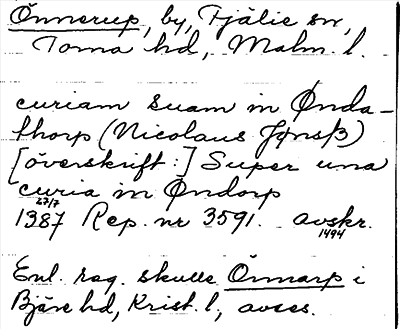 Önnerup, by, Fjälie sn,
Torna hd, Malm. l.
curiam suam in Ønda-
thorp (Nicolaus Jønsß)
[överskrift:] Super una
curia in Øndorp
27/7
1387 Rep. nr 3591. avskr.
1494
Enl. reg. skulle Önnarp i
Bjäre hd, Krist. l, avses.